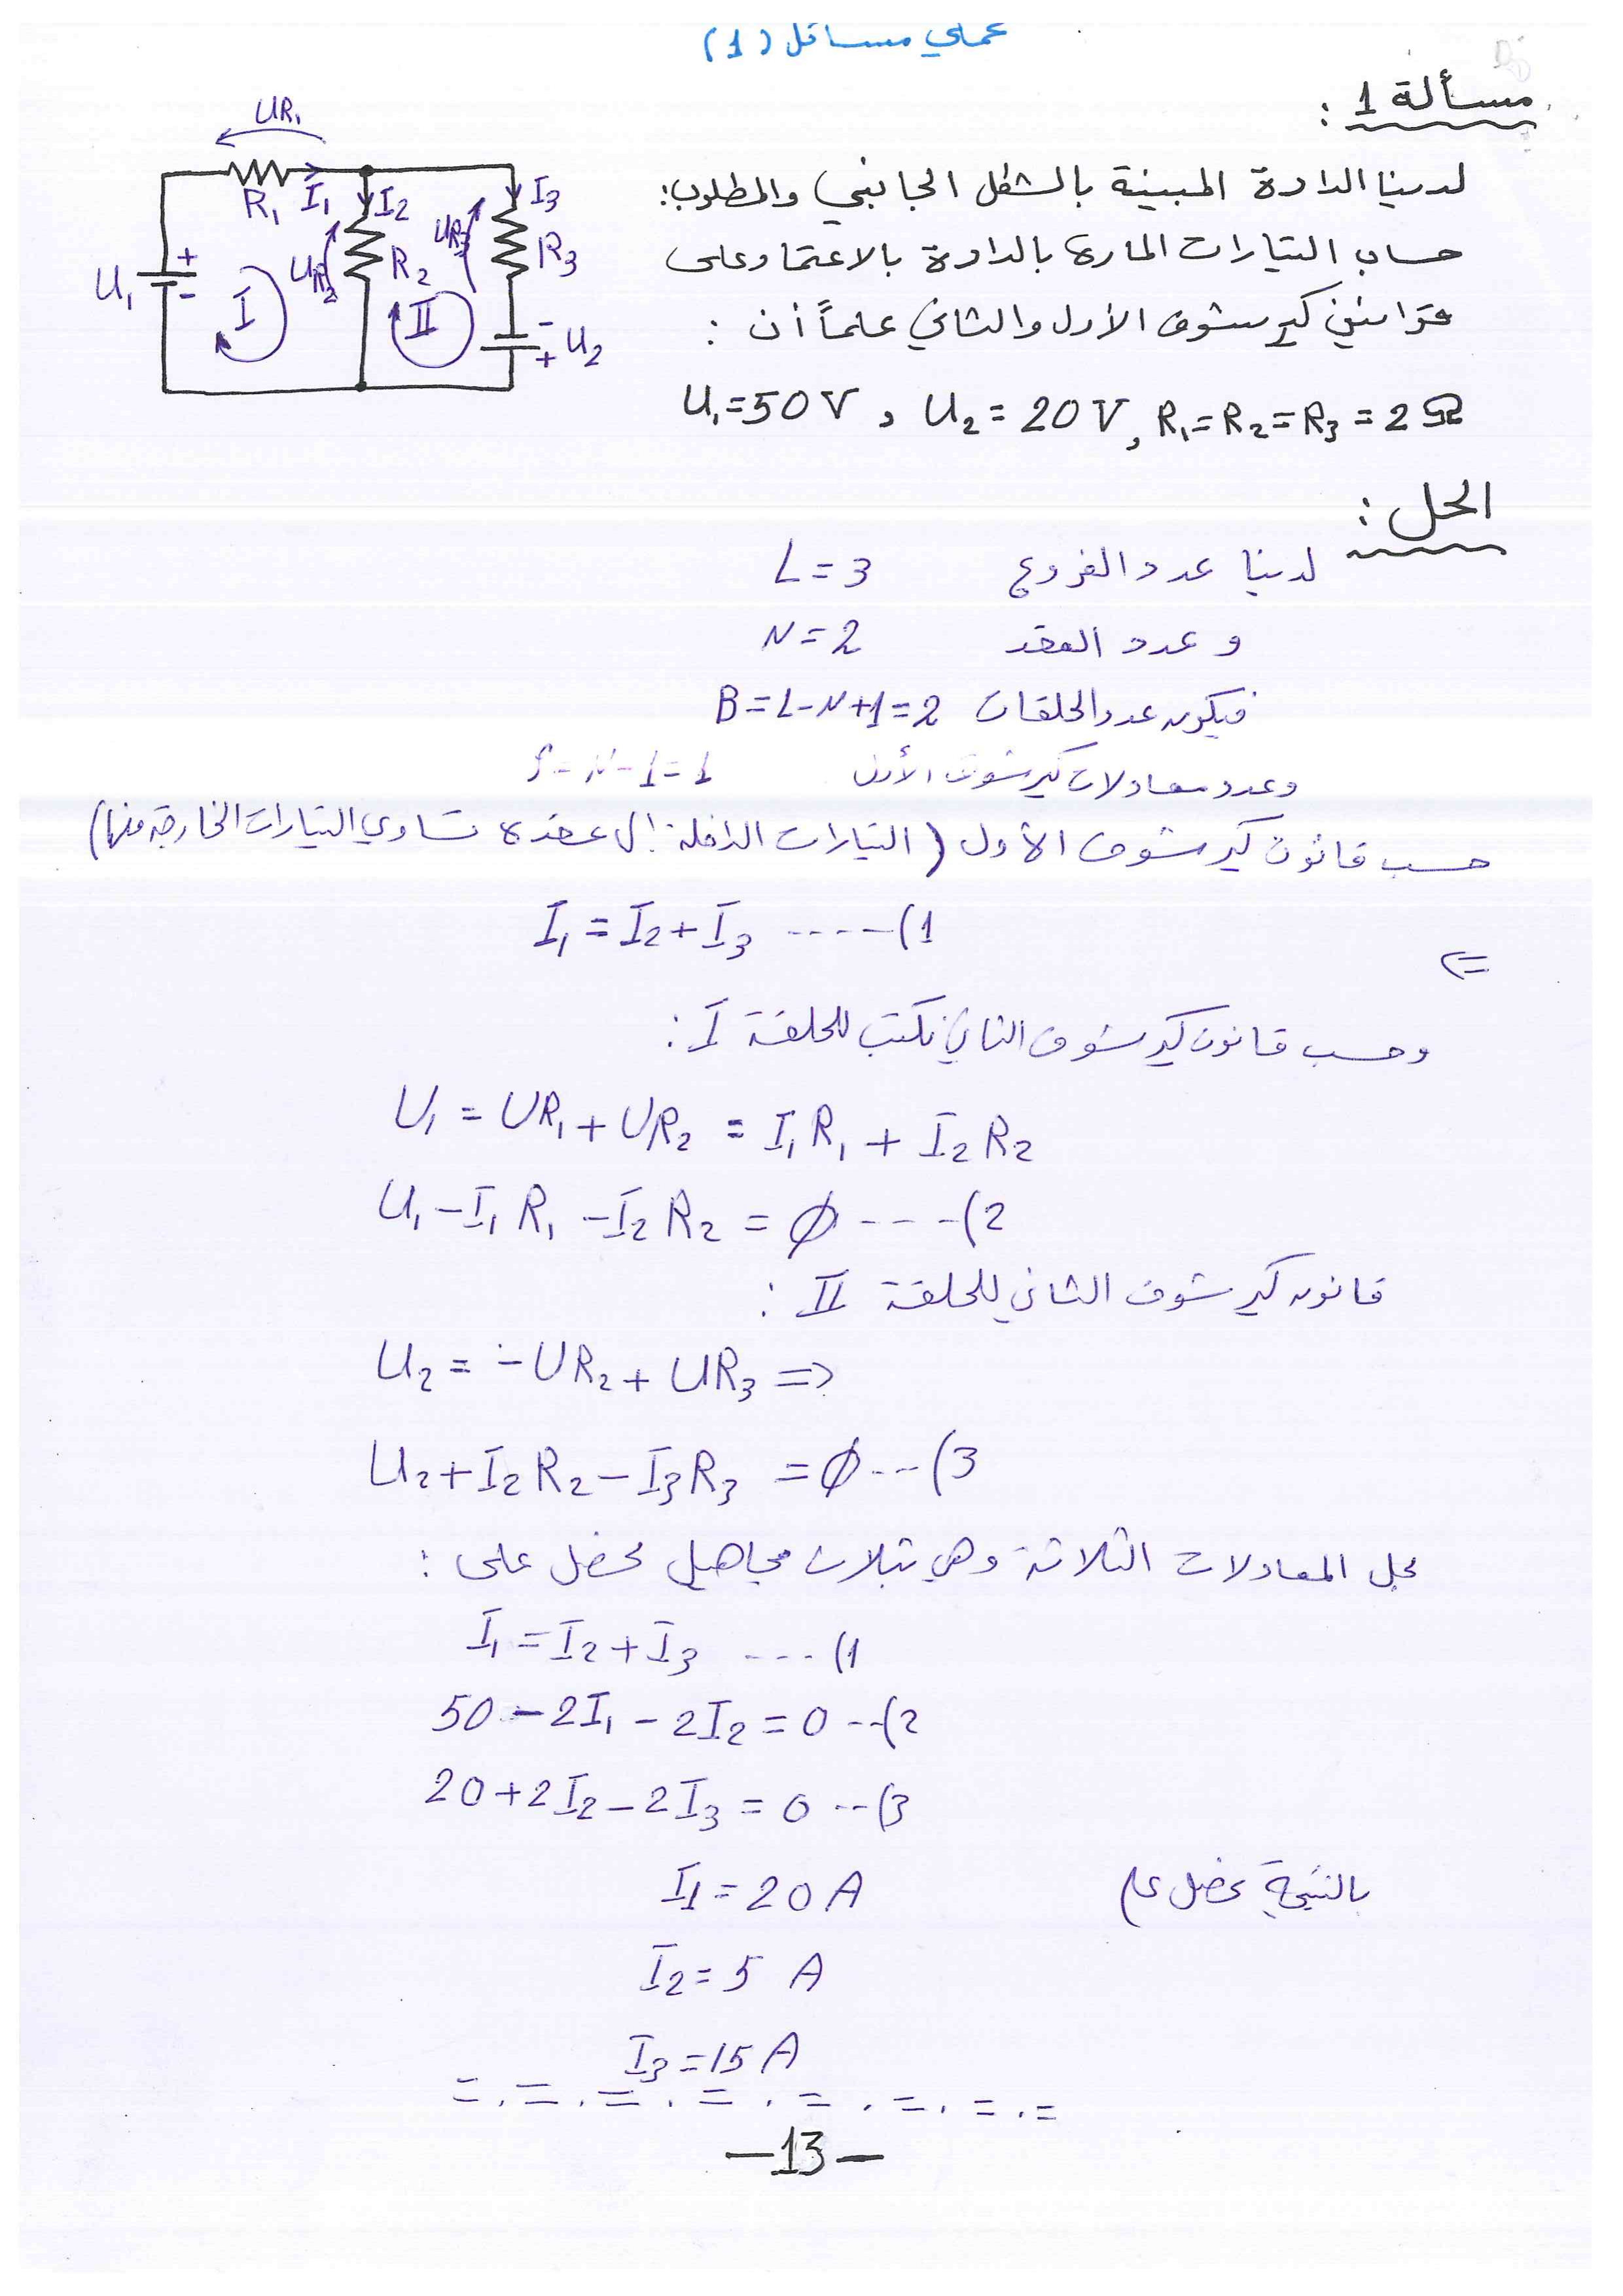 عملي مسائل (1)
مسألة 1 :
لدينا الدارة المبينة بالشكل الجانبي والمطلوب:
حساب التيارات المارة بالدارة بالاعتماد على
قوانين كيرشوف الأول والثاني علماً أن :
U₁=50V , U₂=20V, R₁=R₂=R₃=2Ω
UR₁
R₁ I₁ I₂ I₃
UR₂ R₂ UR₃ R₃
U₁ + - I II - + U₂
الحل :
لدينا عدد الفروع L=3
و عدد العقد N=2
فيكون عدد الحلقات B=L-N+1=2
وعدد معادلات كيرشوف الأول N-1=1
حسب قانون كيرشوف الأول (التيارات الداخلة إلى عقدة تساوي التيارات الخارجة منها)
I₁=I₂+I₃ -----(1
<=
وحسب قانون كيرشوف الثاني نكتب للحلقة I :
U₁=UR₁+UR₂=I₁R₁+I₂R₂
U₁-I₁R₁-I₂R₂=∅----(2
قانون كيرشوف الثاني للحلقة II :
U₂=-UR₂+UR₃=>
U₂+I₂R₂-I₃R₃=∅---(3
بحل المعادلات الثلاثة وهي بثلاث مجاهيل نحصل على :
I₁=I₂+I₃ ----(1
50-2I₁-2I₂=0--(2
20+2I₂-2I₃=0--(3
بالنتيجة نحصل على I1=20A
I₂=5 A
I₃=15A
-13-